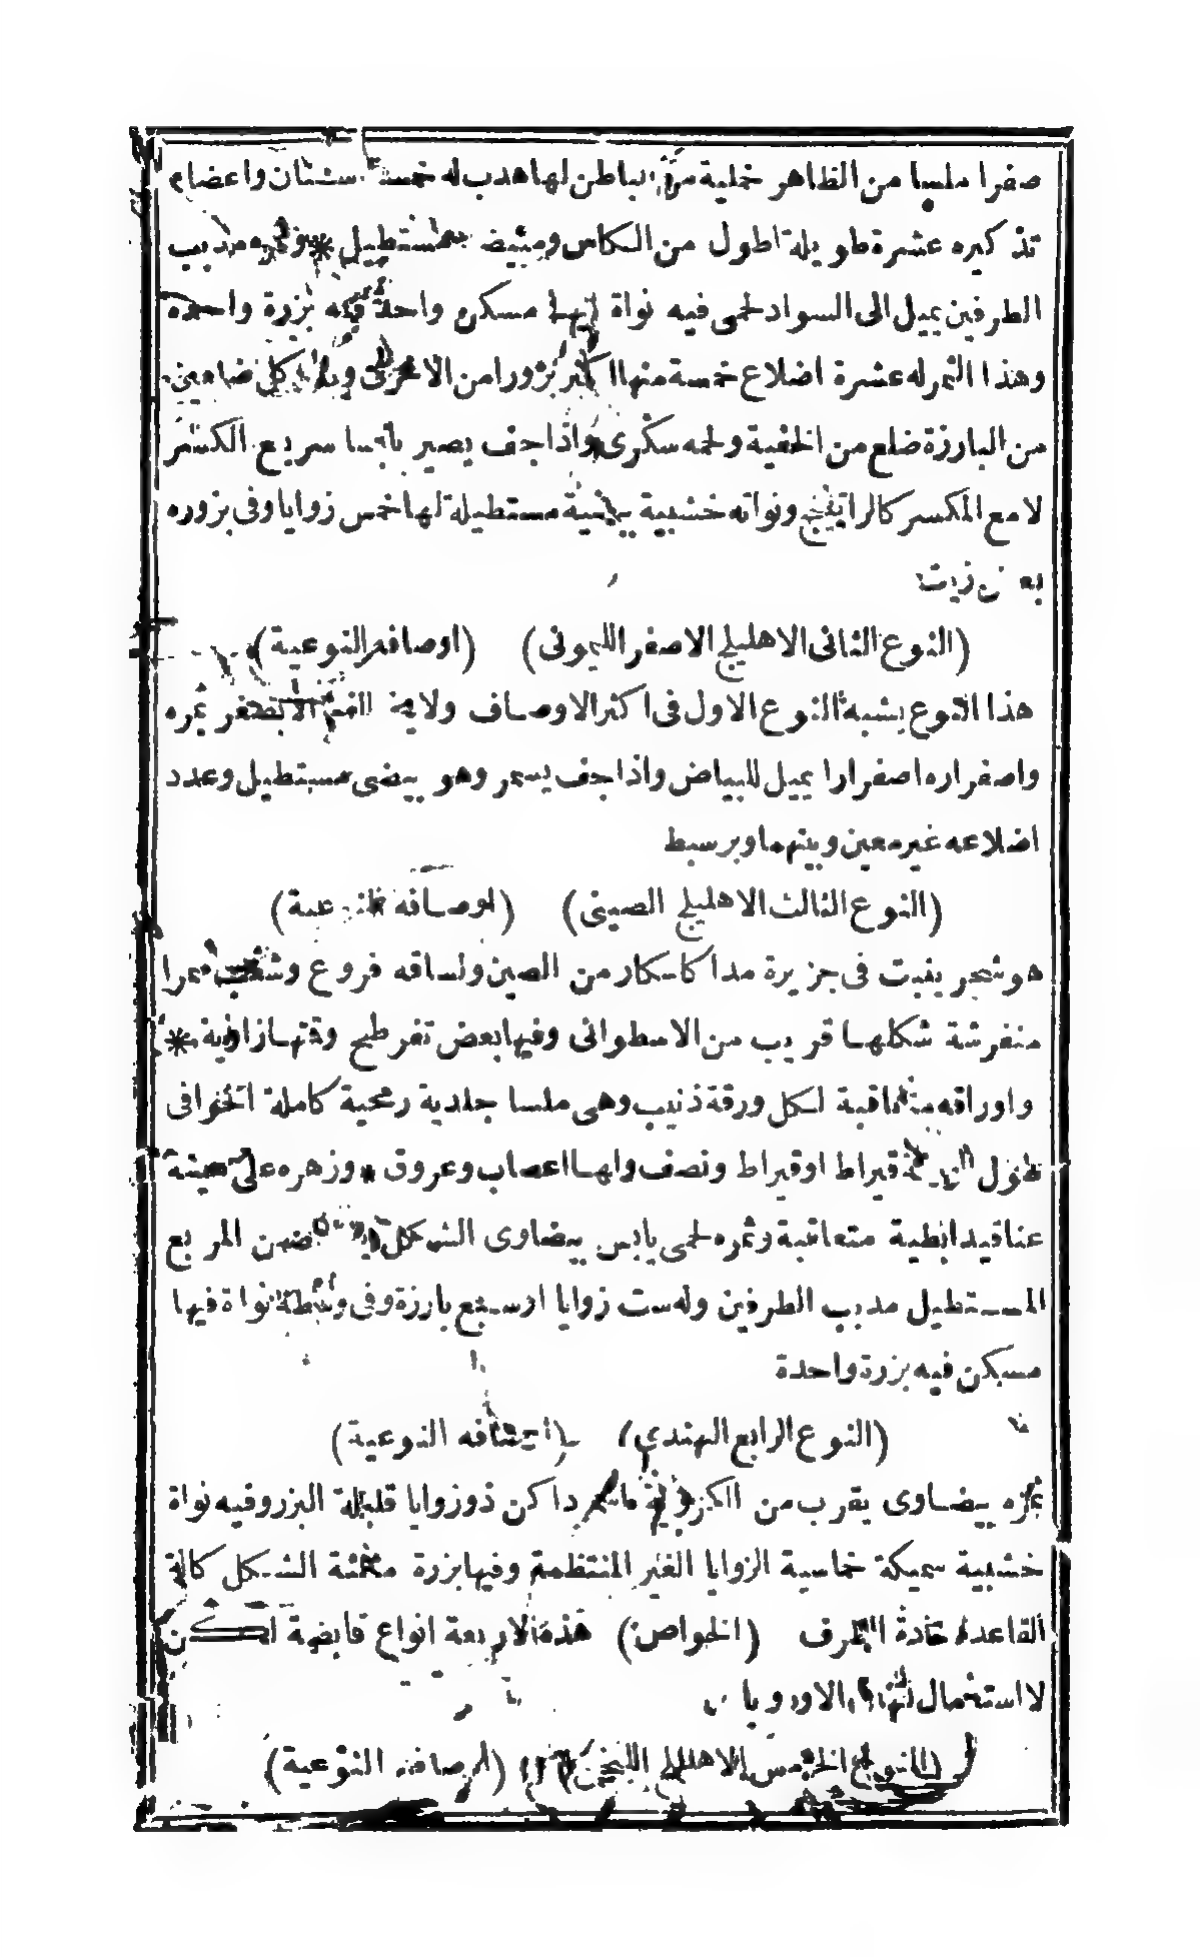 صفرا ملسا من الظاهر خملية من الباطن لها هدب له خمسة اسنان واعضاء
تذكيره عشرة طويلة اطول من الكاس ومبيض مستطيل * وثمره مدبب
الطرفين يميل الى السواد لحمى فيه نواة لها مسكن واحد فيه بزرة واحده
وهذا الثمر له عشرة اضلاع خمسة منها اكثر بروزا من الاخرى وبين كل ضلعين
من البارزة ضلع من الخفية ولحمه سكرى واذا جف يصير يابسا سريع الكسر
لامع المكسر كالراتينج ونواته خشبية بيضية مستطيلة لها خمس زوايا وفى بزوره
بعض زيت
(النوع الثانى الاهليلج الاصفر الليمونى) (اوصافه النوعية)
هذا النوع يشبه النوع الاول فى اكثر الاوصاف ولا الا بصغر ثمره
واصفراره اصفرارا يميل للبياض واذا جف يسمر وهو بيضى مستطيل وعدد
اضلاعه غير معين وبينهما وبر بسيط
(النوع الثالث الاهليلج الصينى) (اوصافه النوعية)
هو شجر ينبت فى جزيرة مداكاسكار من الصين ولساقه فروع وشعب
منفرشة شكلها قريب من الاسطوانى وفيها بعض تفرطح وقتها زاوية *
واوراقه متعاقبة لكل ورقة ذنيب وهى ملسا جلدية رمحية كاملة الحوافى
طول قيراط او قيراط ونصف ولها اعصاب وعروق * وزهره على هيئة
عناقيد ابطية متعاقبة وثمره لحمى يابس بيضاوى الشكل من المربع
المستطيل مدبب الطرفين وله ست زوايا او سبع بارزة وفى وسطه نواة فيها
مسكن فيه بزرة واحدة
(النوع الرابع الهندى) (اوصافه النوعية)
ثمره بيضاوى يقرب من الكروية داكن ذو زوايا قليلة البزر وفيه نواة
خشبية سميكة خماسية الزوايا الغير المنتظمة وفيها بزرة مثلثة الشكل كالة
القاعدة حادة الطرف (الخواص) هذه الاربعة انواع قابضة لكن
لا استعمال لها الاوروبا
(النوع الخامس الاهليلج) (اوصافه النوعية)